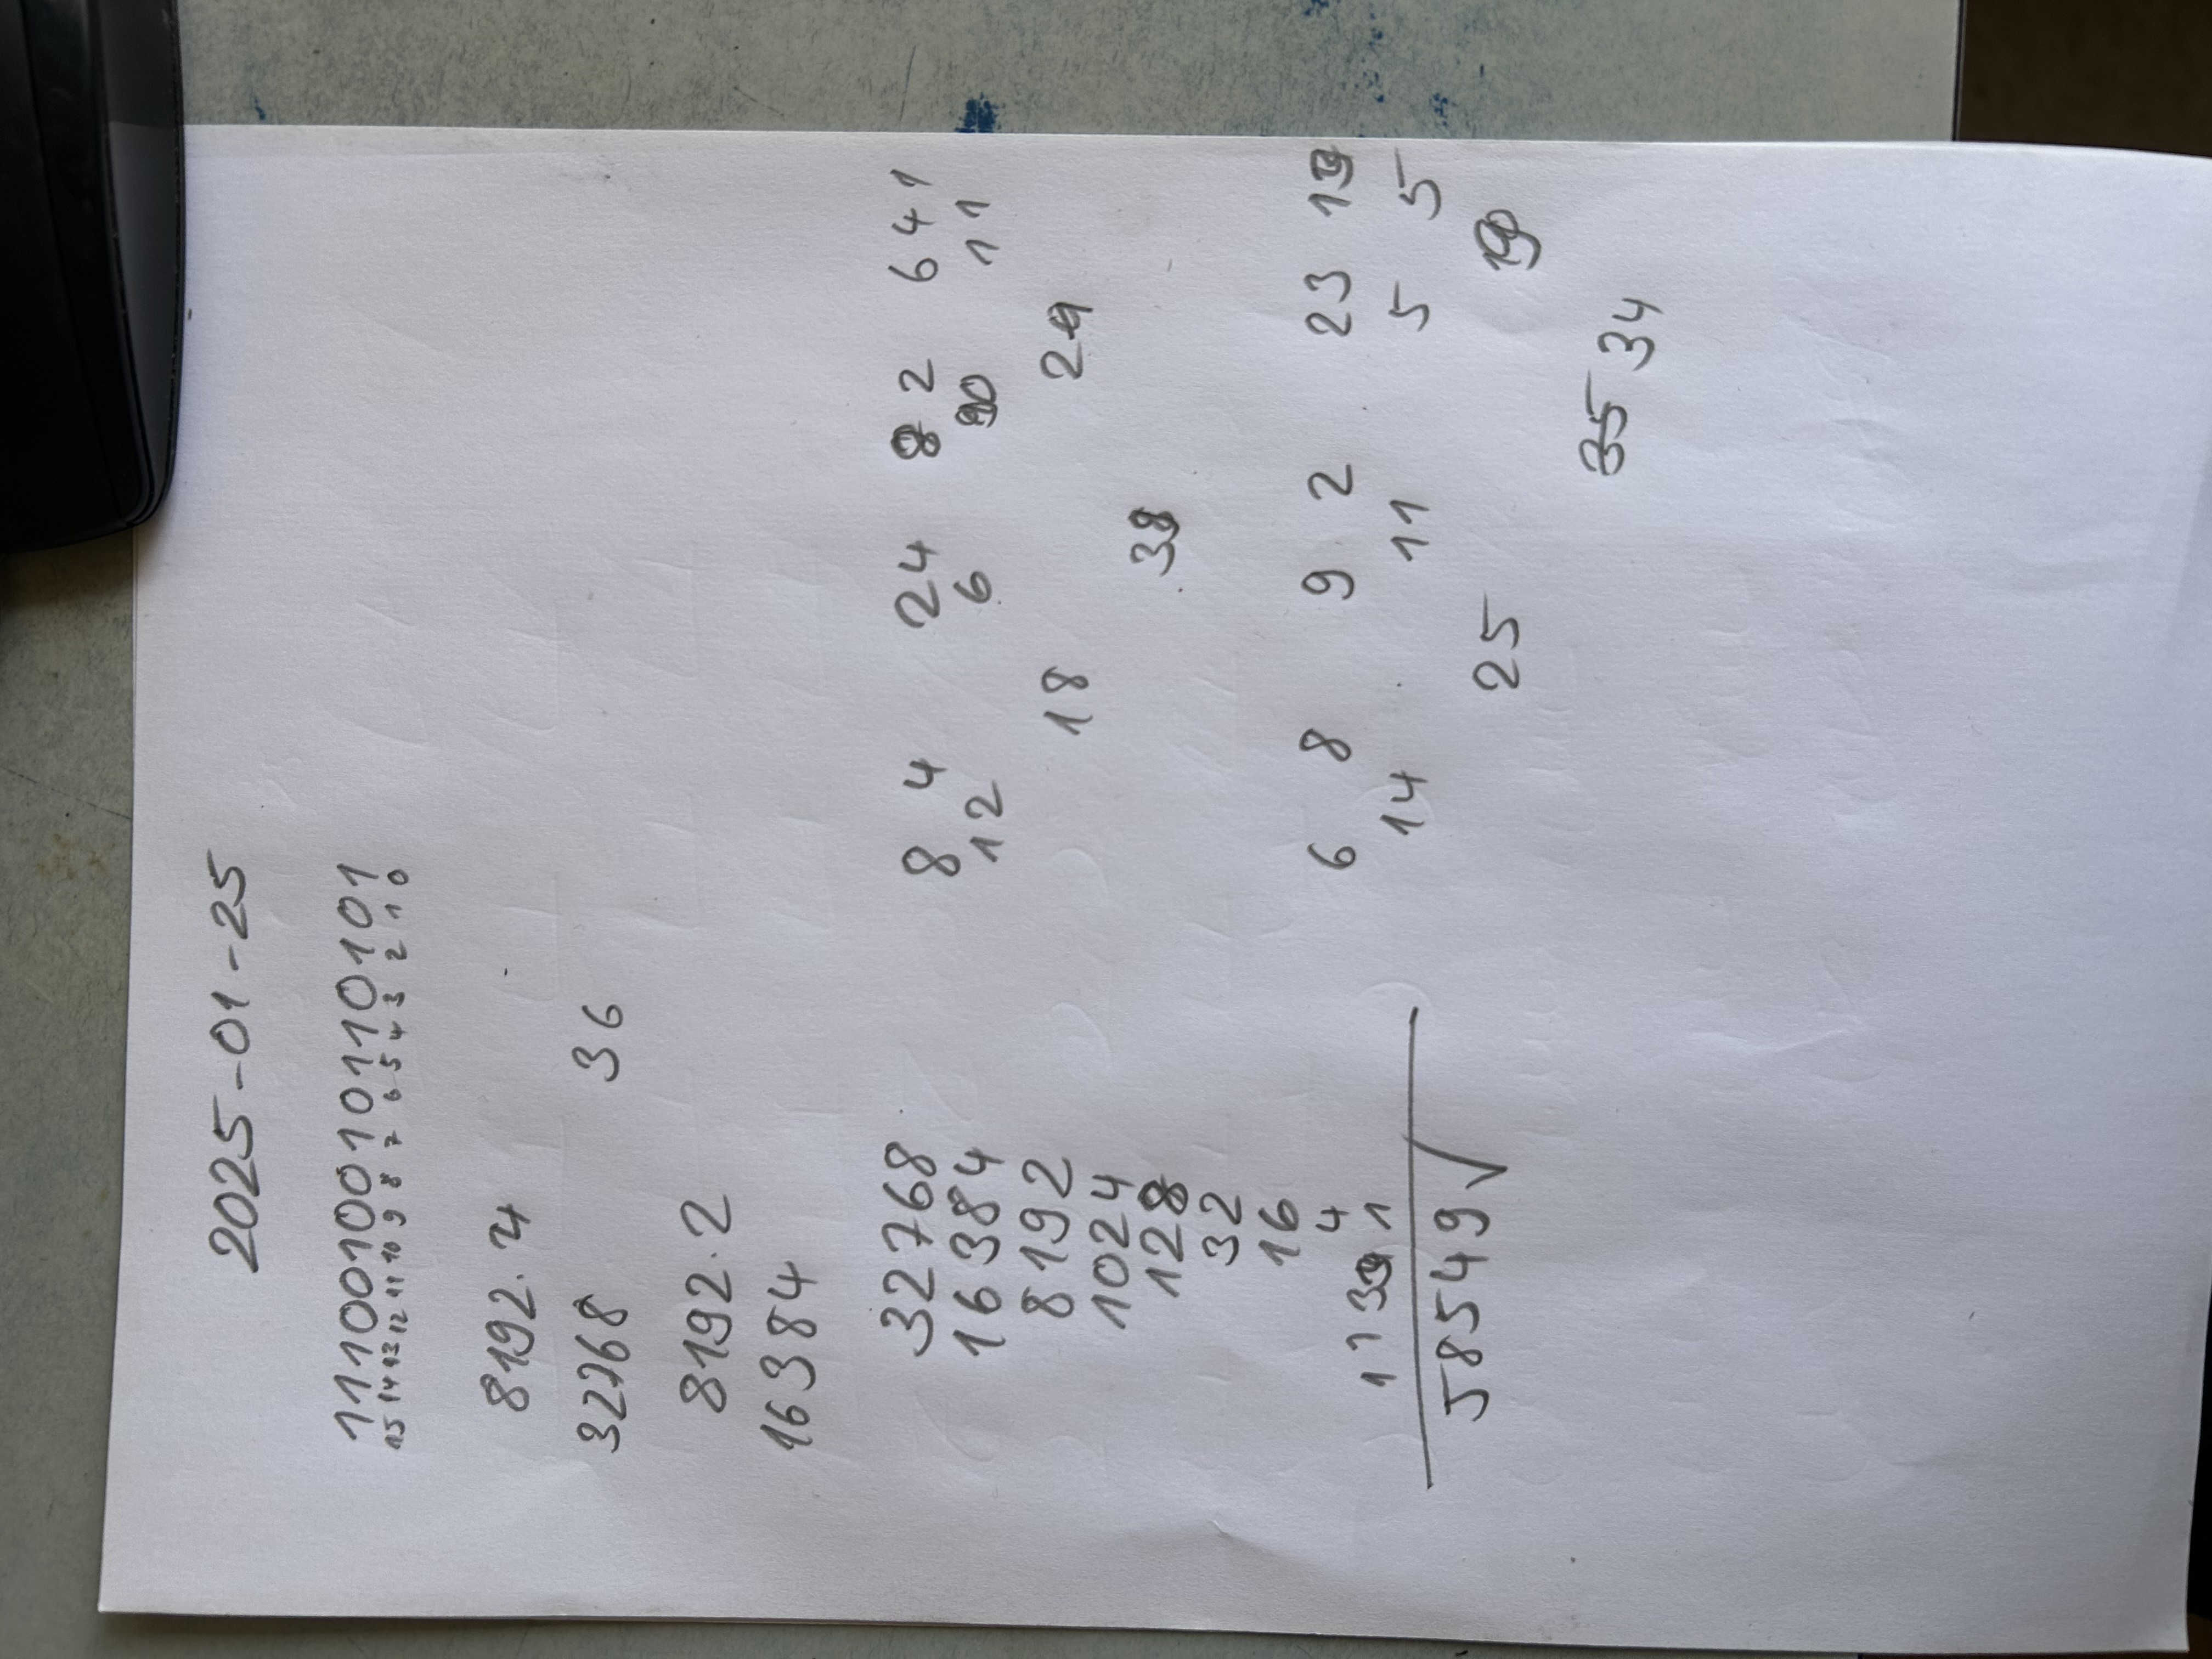 2025-01-25
1110010010110101
15 14 13 12 11 10 9 8 7 6 5 4 3 2 1 0
8192.4
32768 36
8192.2
16384
32768 8 4 24 8 2 6 4 1
16384 12 6 11
8192 18
1024
128
32
16
4 6 8 9 2 23
1 1 3 1 14 11 5 5
58549√ 25
35 34